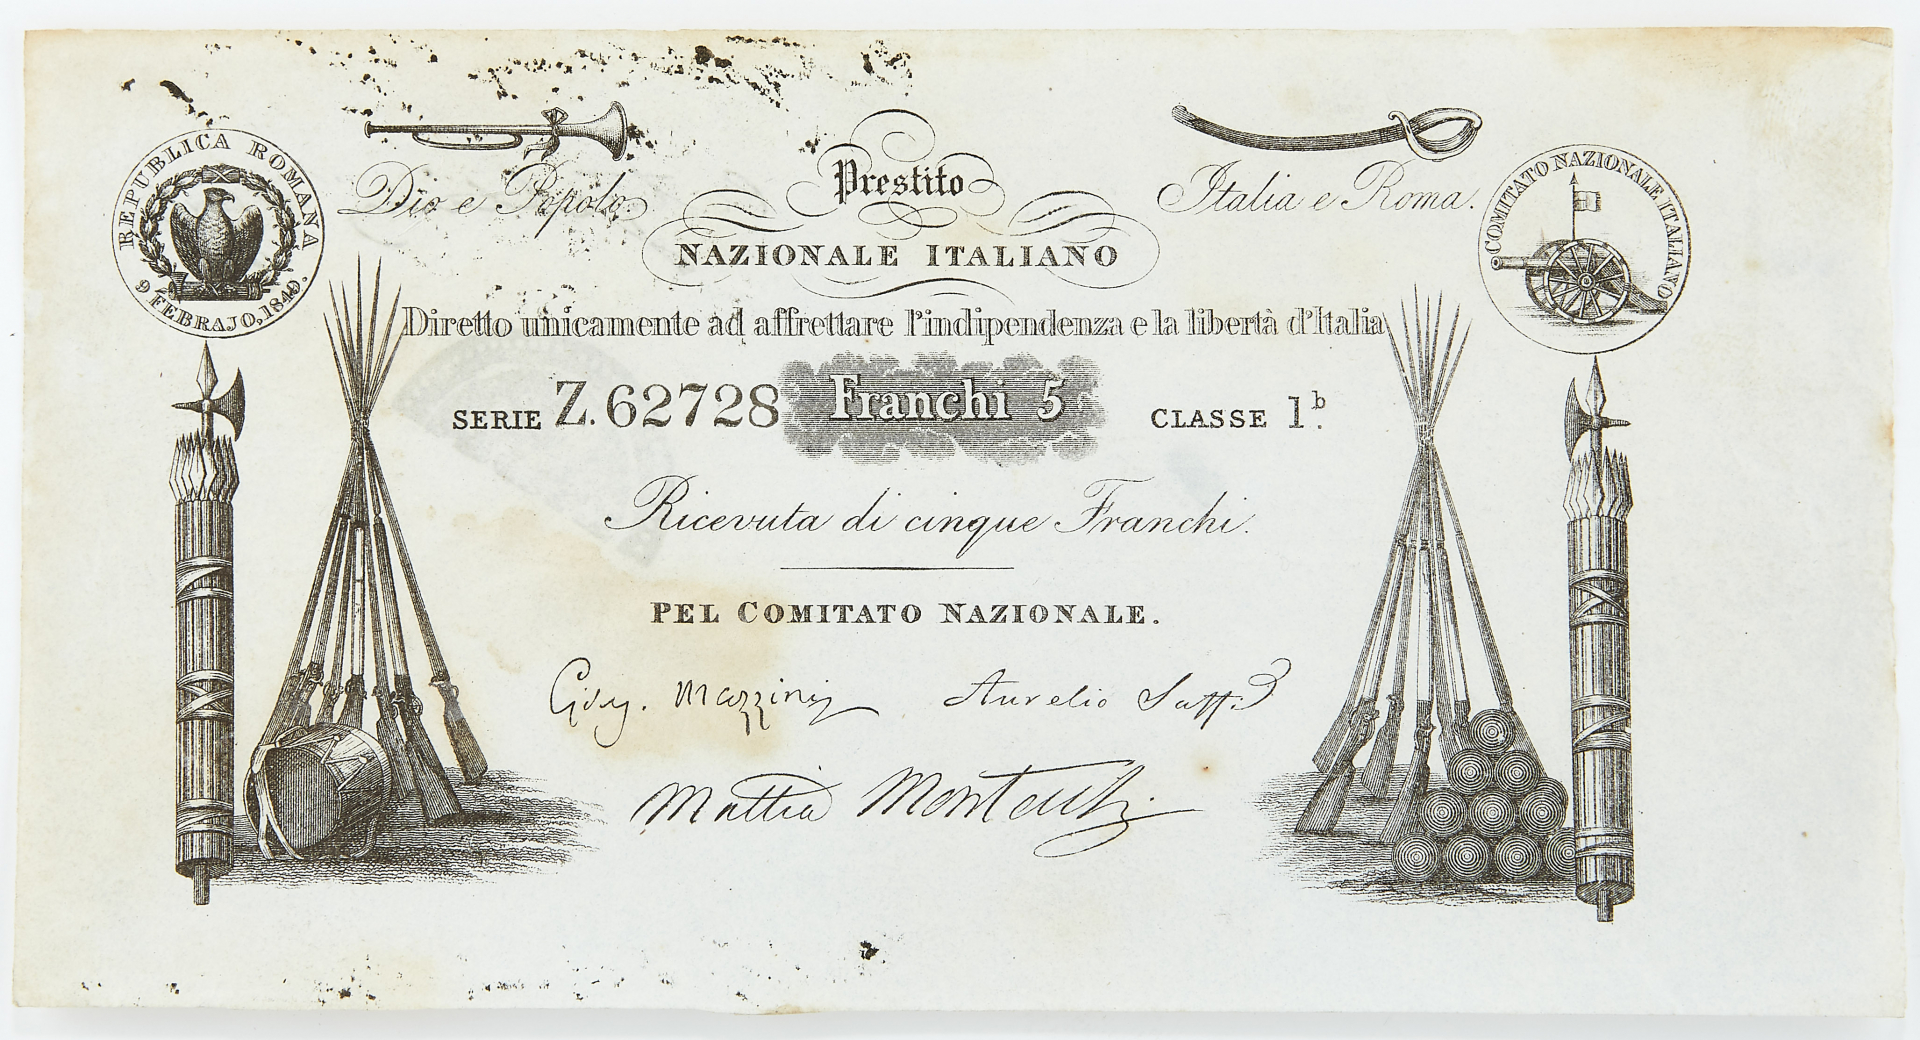 REPUBLICA ROMANA
9 FEBRAJO, 1849.
Dio e Popolo.
Prestito
Italia e Roma.
COMITATO NAZIONALE ITALIANO
NAZIONALE ITALIANO
Diretto unicamente ad affrettare l'indipendenza e la libertà d'Italia
SERIE Z. 62728 Franchi 5 CLASSE 1.b
Ricevuta di cinque Franchi.
PEL COMITATO NAZIONALE.
Mazzini Aurelio Saffi
Mattia Montecchi